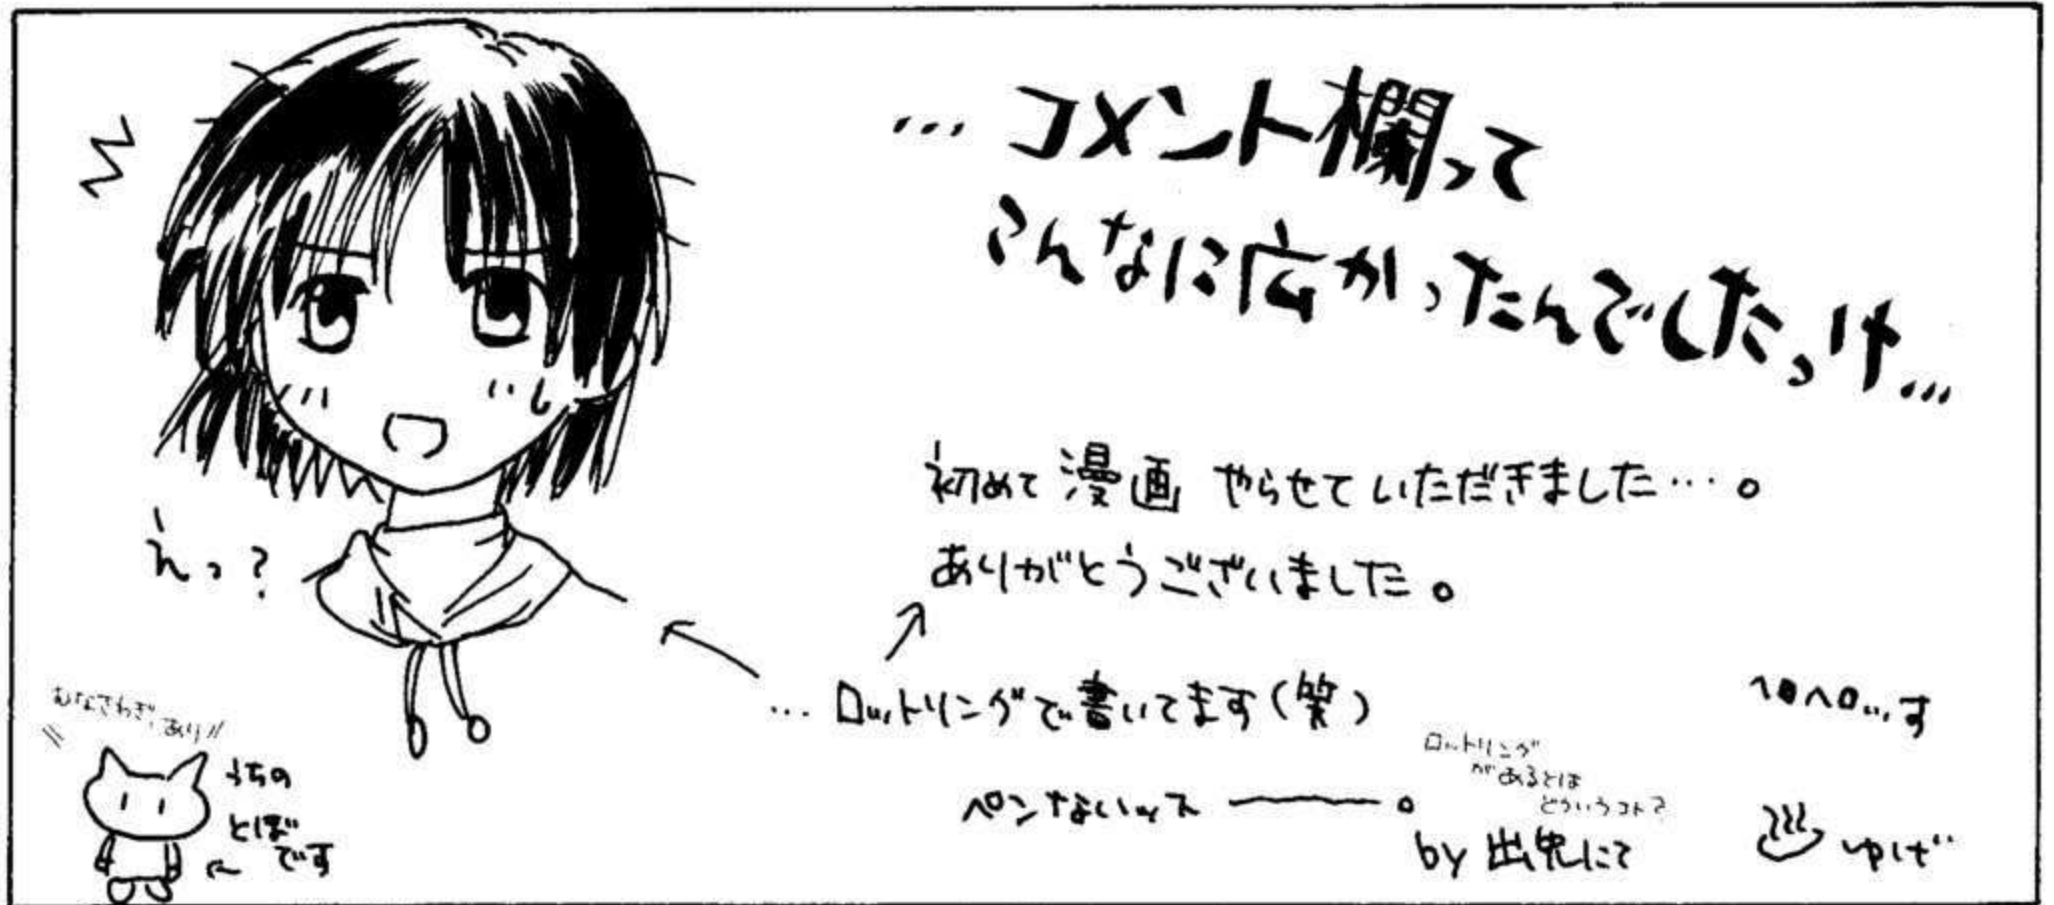 …コメント欄って
こんなに広かったんでしたっけ…
初めて漫画やらせていただきました…。
ありがとうございました。
えっ?
…ロットリングで書いてます(笑)
ヘロヘロっす
ロットリング
があるとは
どういうコト?
ペンないッス――。
by 出先にて
ゆげ
むなさわぎ、あり
うちの
とぼ
です